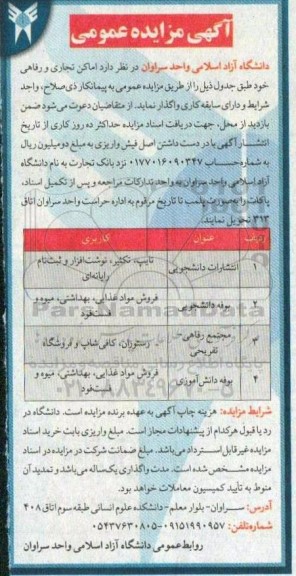 آگهی مزایده عمومی
دانشگاه آزاد اسلامی واحد سراوان در نظر دارد اماکن تجاری و رفاهی
خود طبق جدول ذیل را از طریق مزایده عمومی به پیمانکار ذی‌صلاح، واجد
شرایط و دارای سابقه کاری واگذار نماید. از متقاضیان دعوت می‌شود ضمن
بازدید از محل، جهت دریافت اسناد مزایده حداکثر ده روز کاری از تاریخ
انتشار آگهی با در دست داشتن اصل فیش واریزی به مبلغ دو میلیون ریال
به شماره حساب ۰۱۷۷۰۱۶۰۹۰۳۴۷ نزد بانک تجارت به نام دانشگاه
آزاد اسلامی واحد سراوان به واحد تدارکات مراجعه و پس از تکمیل اسناد،
پاکات را به صورت پلمپ تا تاریخ مرقوم به اداره حراست واحد سراوان اتاق
۳۱۳ تحویل نمایند.
ردیف عنوان کاربری
۱ انتشارات دانشجویی تایپ، تکثیر، نوشت‌افزار و ثبت‌نام رایانه‌ای
۲ بوفه دانشجویی فروش مواد غذایی، بهداشتی، میوه و فست‌فود
۳ مجتمع رفاهی- تفریحی رستوران، کافی‌شاپ و فروشگاه
۴ بوفه دانش‌آموزی فروش مواد غذایی، بهداشتی، میوه و فست‌فود
شرایط مزایده: هزینه چاپ آگهی به عهده برنده مزایده است. دانشگاه در
رد یا قبول هرکدام از پیشنهادات مجاز است. مبلغ واریزی بابت خرید اسناد
مزایده غیرقابل استرداد می‌باشد. مبلغ ضمانت شرکت در مزایده در اسناد
مزایده مشخص شده است. مدت واگذاری یک‌ساله می‌باشد و تمدید آن
منوط به تأیید کمیسیون معاملات خواهد بود.
آدرس: سراوان- بلوار معلم- دانشکده علوم انسانی طبقه سوم اتاق ۴۰۸
شماره تلفن: ۰۹۱۵۱۹۹۰۹۵۷-۰۵۴۳۷۶۳۰۸۰۵
روابط‌عمومی دانشگاه آزاد اسلامی واحد سراوان